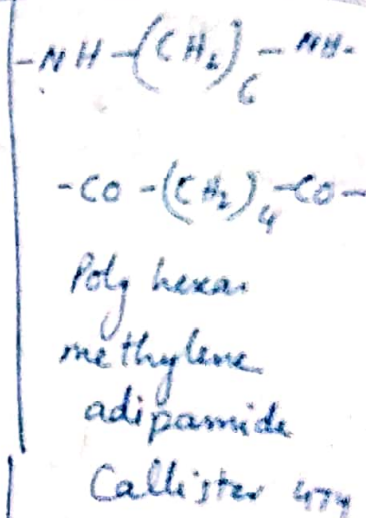 -NH-(CH₂)₆-NH-
-CO-(CH₂)₄-CO-
Poly hexa
methylene
adipamide
Callister 474